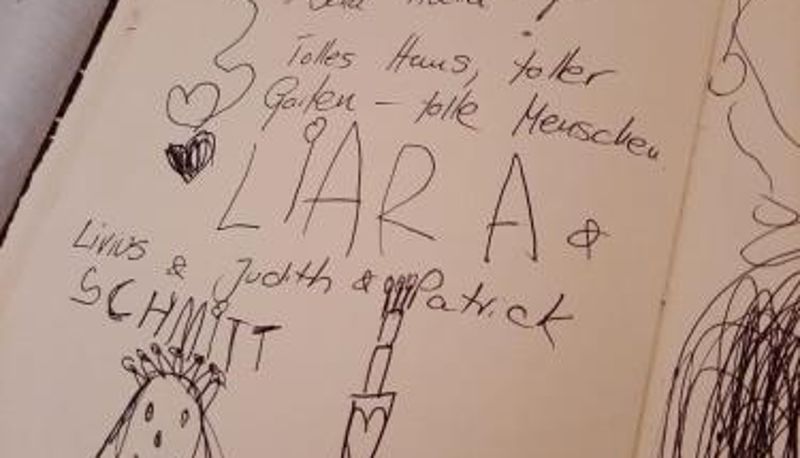 Tolles Haus, toller
Garten - tolle Menschen
LIARA &
Livius & Judith & Patrick
SCHMITT